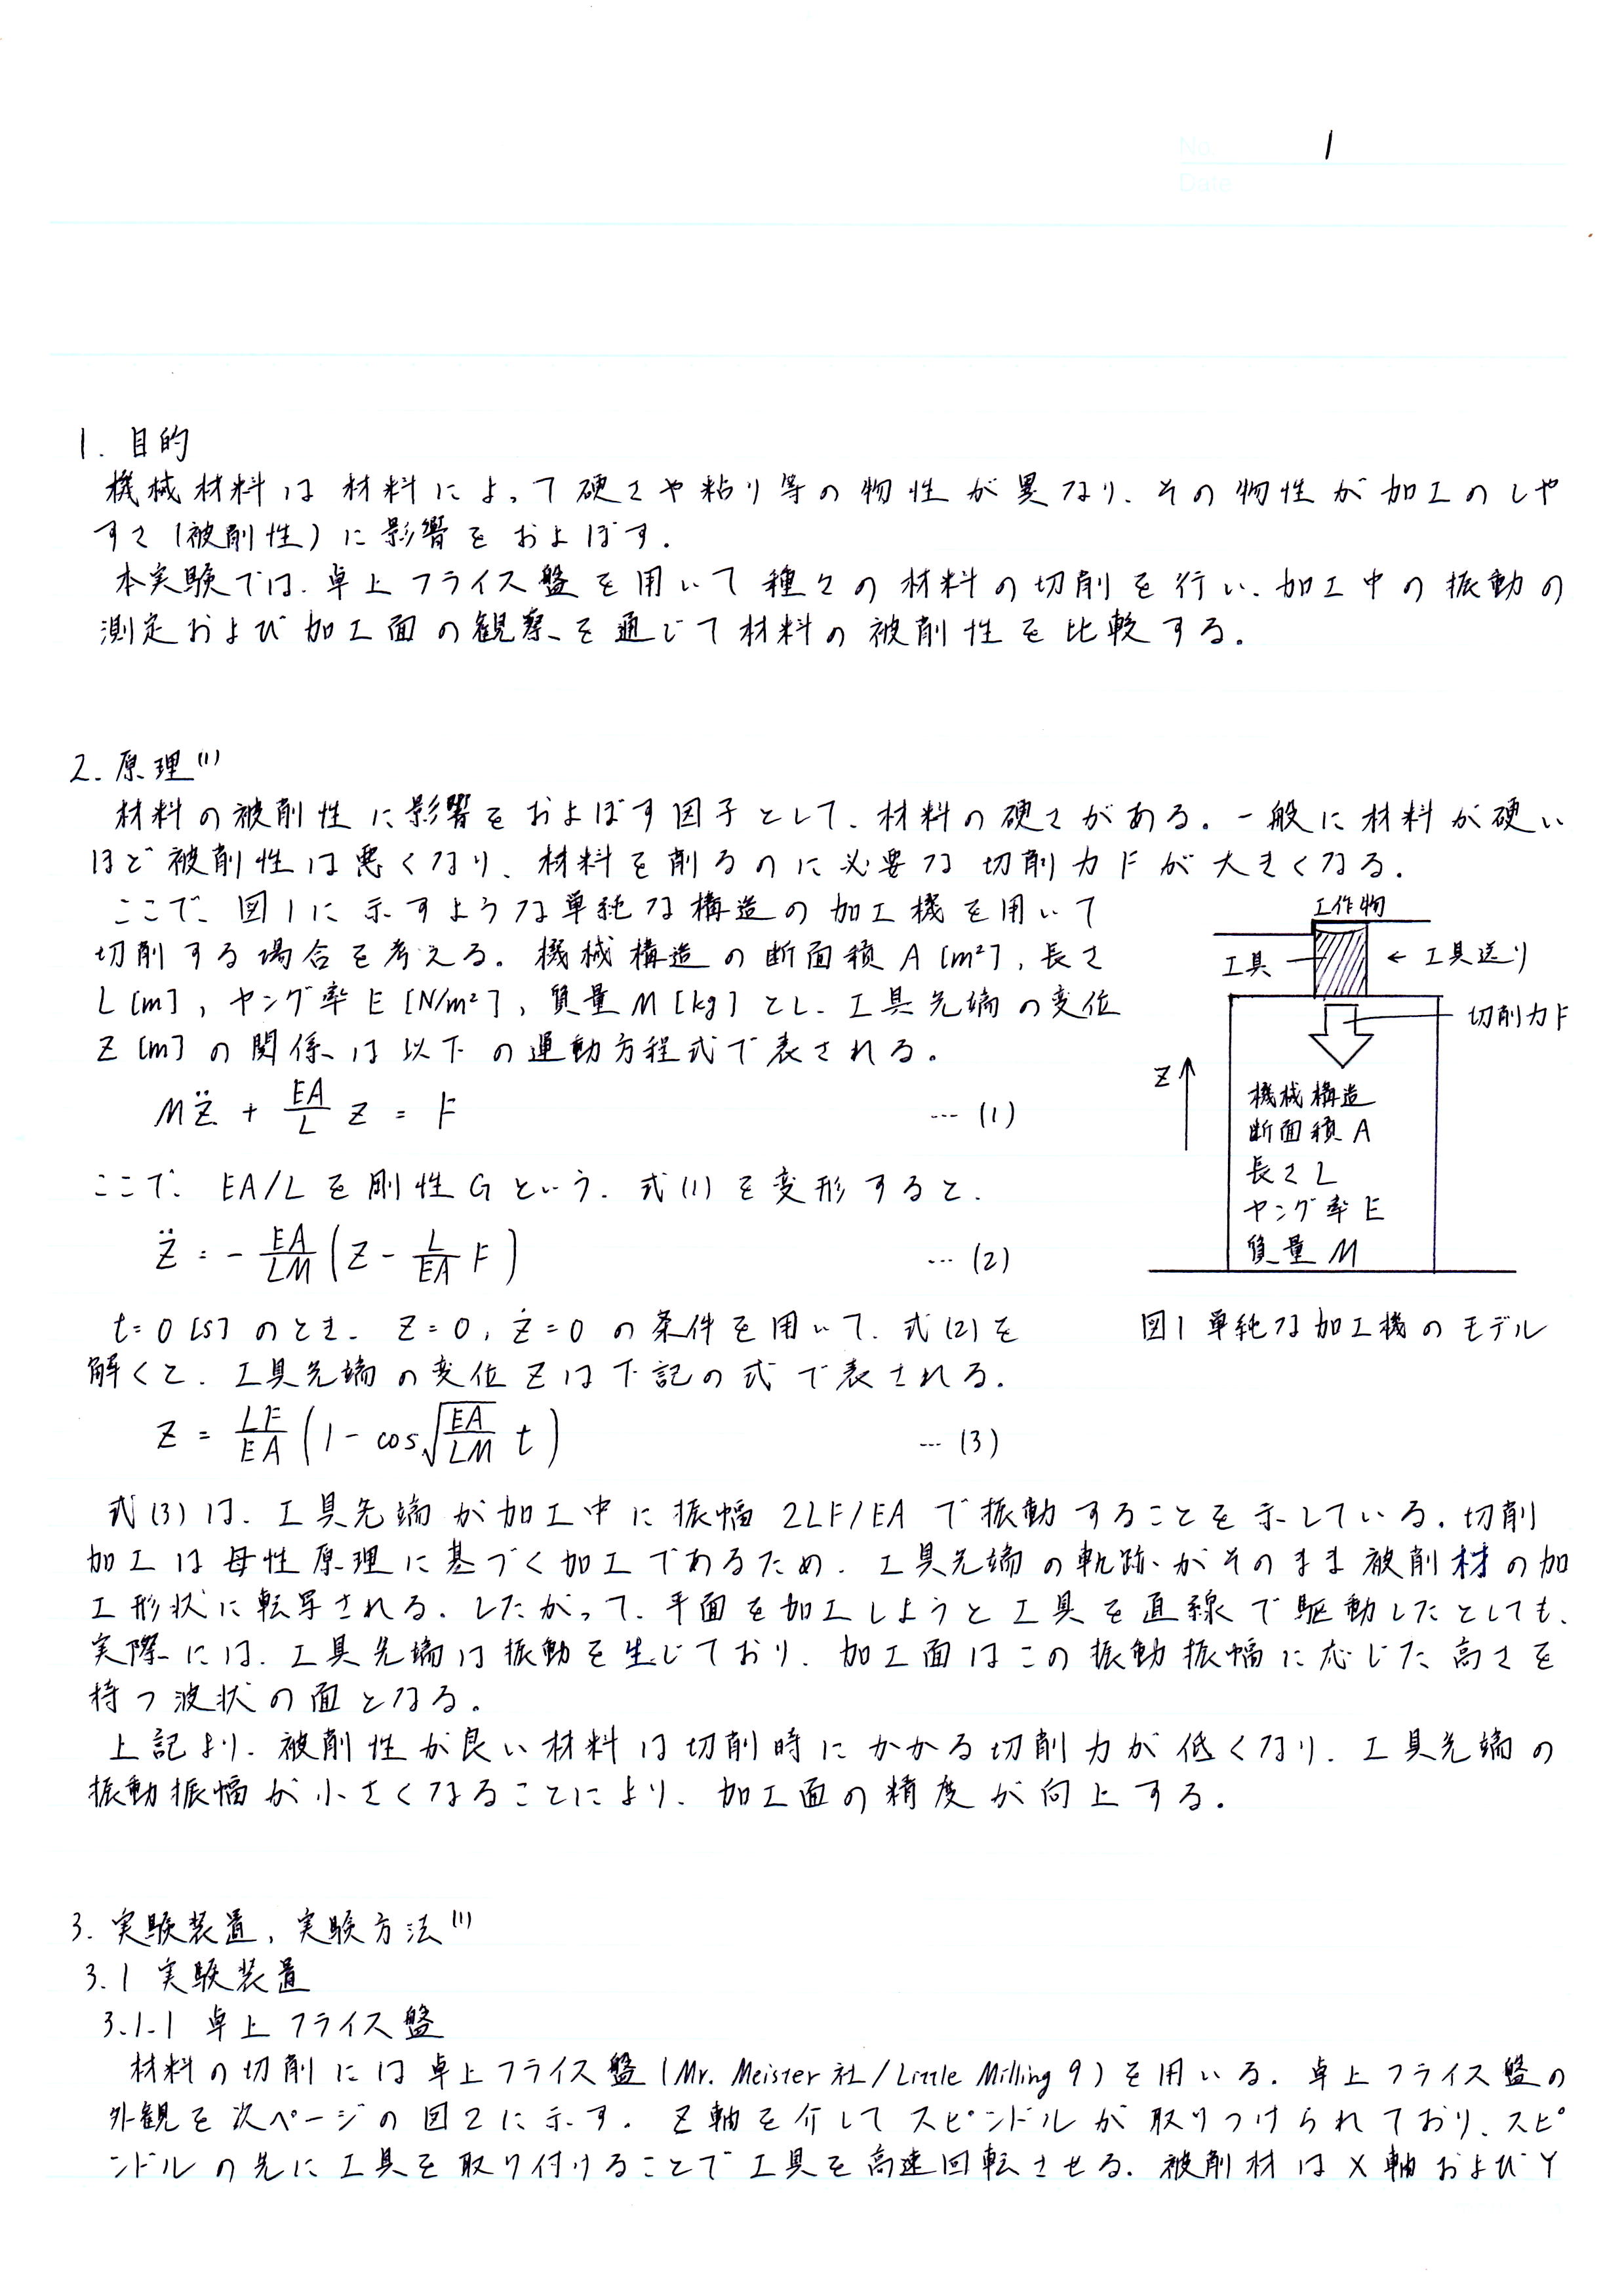 No. 1
Date
1. 目的
機械材料は材料によって硬さや粘り等の物性が異なり、その物性が加工のしや
すさ(被削性)に影響をおよぼす.
本実験では、卓上フライス盤を用いて種々の材料の切削を行い、加工中の振動の
測定および加工面の観察を通じて材料の被削性を比較する.
2. 原理(1)
材料の被削性に影響をおよぼす因子として、材料の硬さがある. 一般に材料が硬い
ほど被削性は悪くなり、材料を削るのに必要な切削力Fが大きくなる.
ここで、図1に示すような単純な構造の加工機を用いて
切削する場合を考える. 機械構造の断面積A[m²], 長さ
L[m], ヤング率E[N/m²], 質量M[kg]とし、工具先端の変位
Z[m]の関係は以下の運動方程式で表される.
MZ̈ + EA/L Z = F … (1)
ここで、EA/Lを剛性Gという. 式(1)を変形すると、
Z̈ = - EA/LM (Z - L/EA F) … (2)
t=0[s]のとき、Z=0, Ż=0の条件を用いて、式(2)を
解くと、工具先端の変位Zは下記の式で表される.
Z = LF/EA (1 - cos√(EA/LM) t) … (3)
工作物
工具
← 工具送り
切削力F
Z
機械構造
断面積A
長さL
ヤング率E
質量M
図1 単純な加工機のモデル
式(3)は、工具先端が加工中に振幅2LF/EAで振動することを示している. 切削
加工は母性原理に基づく加工であるため、工具先端の軌跡がそのまま被削材の加
工形状に転写される. したがって、平面を加工しようと工具を直線で駆動したとしても、
実際には、工具先端は振動を生じており、加工面はこの振動振幅に応じた高さを
持つ波状の面となる.
上記より、被削性が良い材料は切削時にかかる切削力が低くなり、工具先端の
振動振幅が小さくなることにより、加工面の精度が向上する.
3. 実験装置, 実験方法(1)
3.1 実験装置
3.1.1 卓上フライス盤
材料の切削には卓上フライス盤(Mr. Meister社/Little Milling 9)を用いる. 卓上フライス盤の
外観を次ページの図2に示す. Z軸を介してスピンドルが取りつけられており、スピ
ンドルの先に工具を取り付けることで工具を高速回転させる. 被削材はX軸およびY